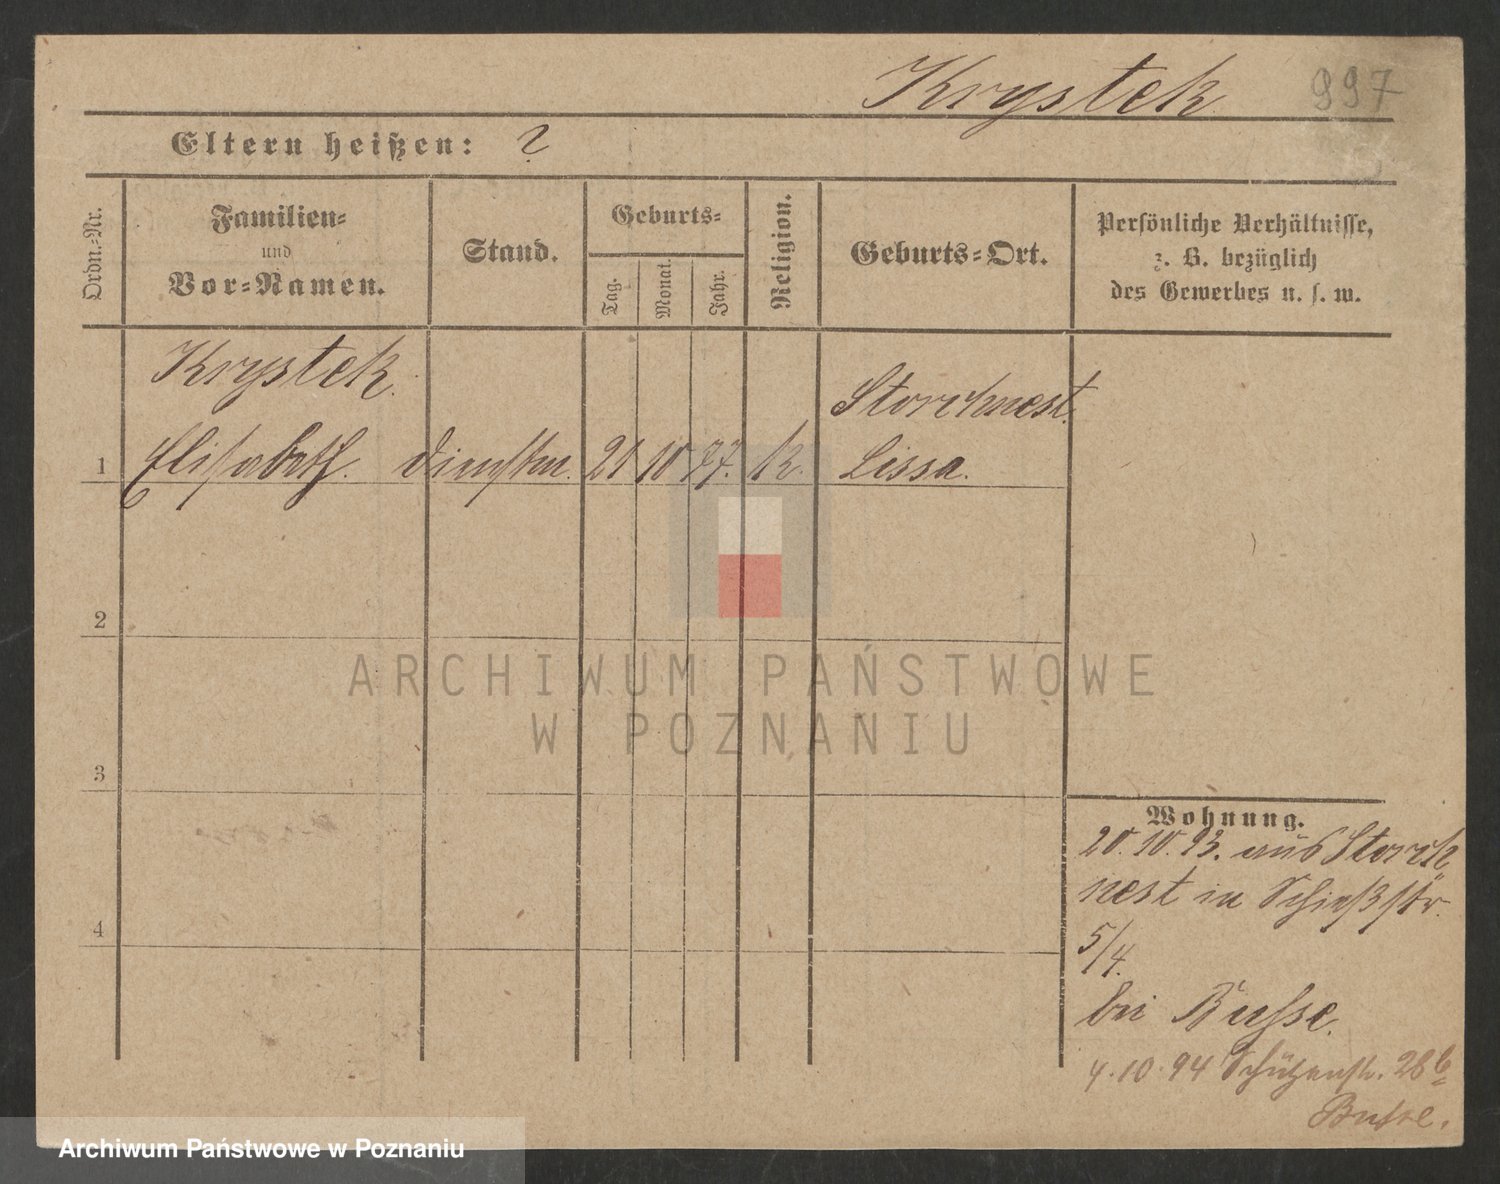 Krystek 997
Eltern heißen: ?
Ordn.-Nr.
Familien-
und
Vor-Namen.
Stand.
Geburts-
Tag.
Monat.
Jahr.
Religion.
Geburts-Ort.
Persönliche Verhältnisse,
z. B. bezüglich
des Gewerbes u. s. w.
Krystek.
Storchnest.
1 Elisabeth. 21 10 77. k. Lissa.
2
3
4
Wohnung.
20.10.93. aus Storch
nest in Schießstr.
5/4.
bei Busse.
4.10.94 Schützenstr. 28b
Busse.
ARCHIWUM PAŃSTWOWE
W POZNANIU
Archiwum Państwowe w Poznaniu